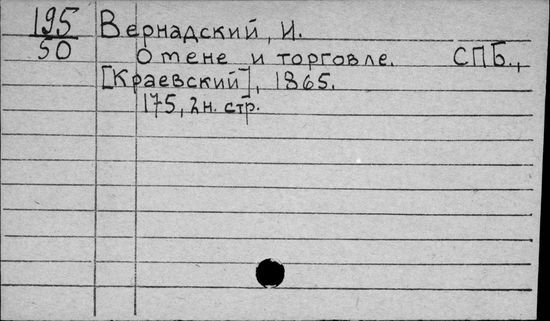 195 Вернадский, И.
50 О мене и торговле. СПБ.,
[Краевский], 1865.
175, 2 н. стр.